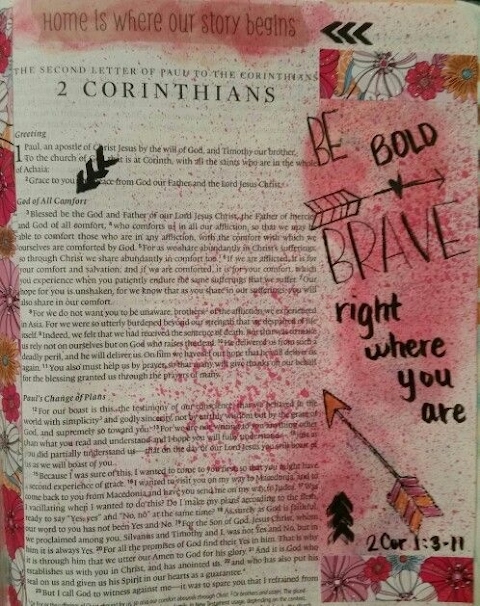 Home is where our story begins
THE SECOND LETTER OF PAUL TO THE CORINTHIANS
2 CORINTHIANS
Greeting
1 Paul, an apostle of Christ Jesus by the will of God, and Timothy our brother,
To the church of that is at Corinth, with all the saints who are in the whole
of Achaia:
2 Grace to you peace from God our Father and the Lord Jesus Christ.
God of All Comfort
3 Blessed be the God and Father of our Lord Jesus Christ, the Father of mercies
and God of all comfort, 4 who comforts us in all our affliction, so that we may be
able to comfort those who are in any affliction, with the comfort with which we
ourselves are comforted by God. 5 For as we share abundantly in Christ's sufferings,
so through Christ we share abundantly in comfort too. 6 If we are afflicted, it is for
your comfort and salvation; and if we are comforted, it is for your comfort, which
you experience when you patiently endure the same sufferings that we suffer. 7 Our
hope for you is unshaken, for we know that as you share in our sufferings, you will
also share in our comfort.
8 For we do not want you to be unaware, brothers, of the affliction we experienced
in Asia. For we were so utterly burdened beyond our strength that we despaired of life
itself. 9 Indeed, we felt that we had received the sentence of death. But that was to make
us rely not on ourselves but on God who raises the dead. 10 He delivered us from such a
deadly peril, and he will deliver us. On him we have set our hope that he will deliver us
again. 11 You also must help us by prayer, so that many will give thanks on our behalf
for the blessing granted us through the prayers of many.
Paul's Change of Plans
12 For our boast is this, the testimony of our conscience, that we behaved in the
world with simplicity and godly sincerity, not by earthly wisdom but by the grace of
God, and supremely so toward you. 13 For we are not writing to you anything other
than what you read and understand and I hope you will fully understand
you did partially understand us— that on the day of our Lord Jesus you will boast of
us as we will boast of you.
15 Because I was sure of this, I wanted to come to you first, so that you might have
a second experience of grace. 16 I wanted to visit you on my way to Macedonia, and to
come back to you from Macedonia and have you send me on my way to Judea. 17 Was I
vacillating when I wanted to do this? Do I make my plans according to the flesh,
ready to say "Yes, yes" and "No, no" at the same time? 18 As surely as God is faithful,
our word to you has not been Yes and No. 19 For the Son of God, Jesus Christ, whom
we proclaimed among you, Silvanus and Timothy and I, was not Yes and No, but in
him it is always Yes. 20 For all the promises of God find their Yes in him. That is why
it is through him that we utter our Amen to God for his glory. 21 And it is God who
establishes us with you in Christ, and has anointed us, 22 and who has also put his
seal on us and given us his Spirit in our hearts as a guarantee.
23 But I call God to witness against me—it was to spare you that I refrained from
BE BOLD
BRAVE
right
where
you
are
2 Cor 1:3-11